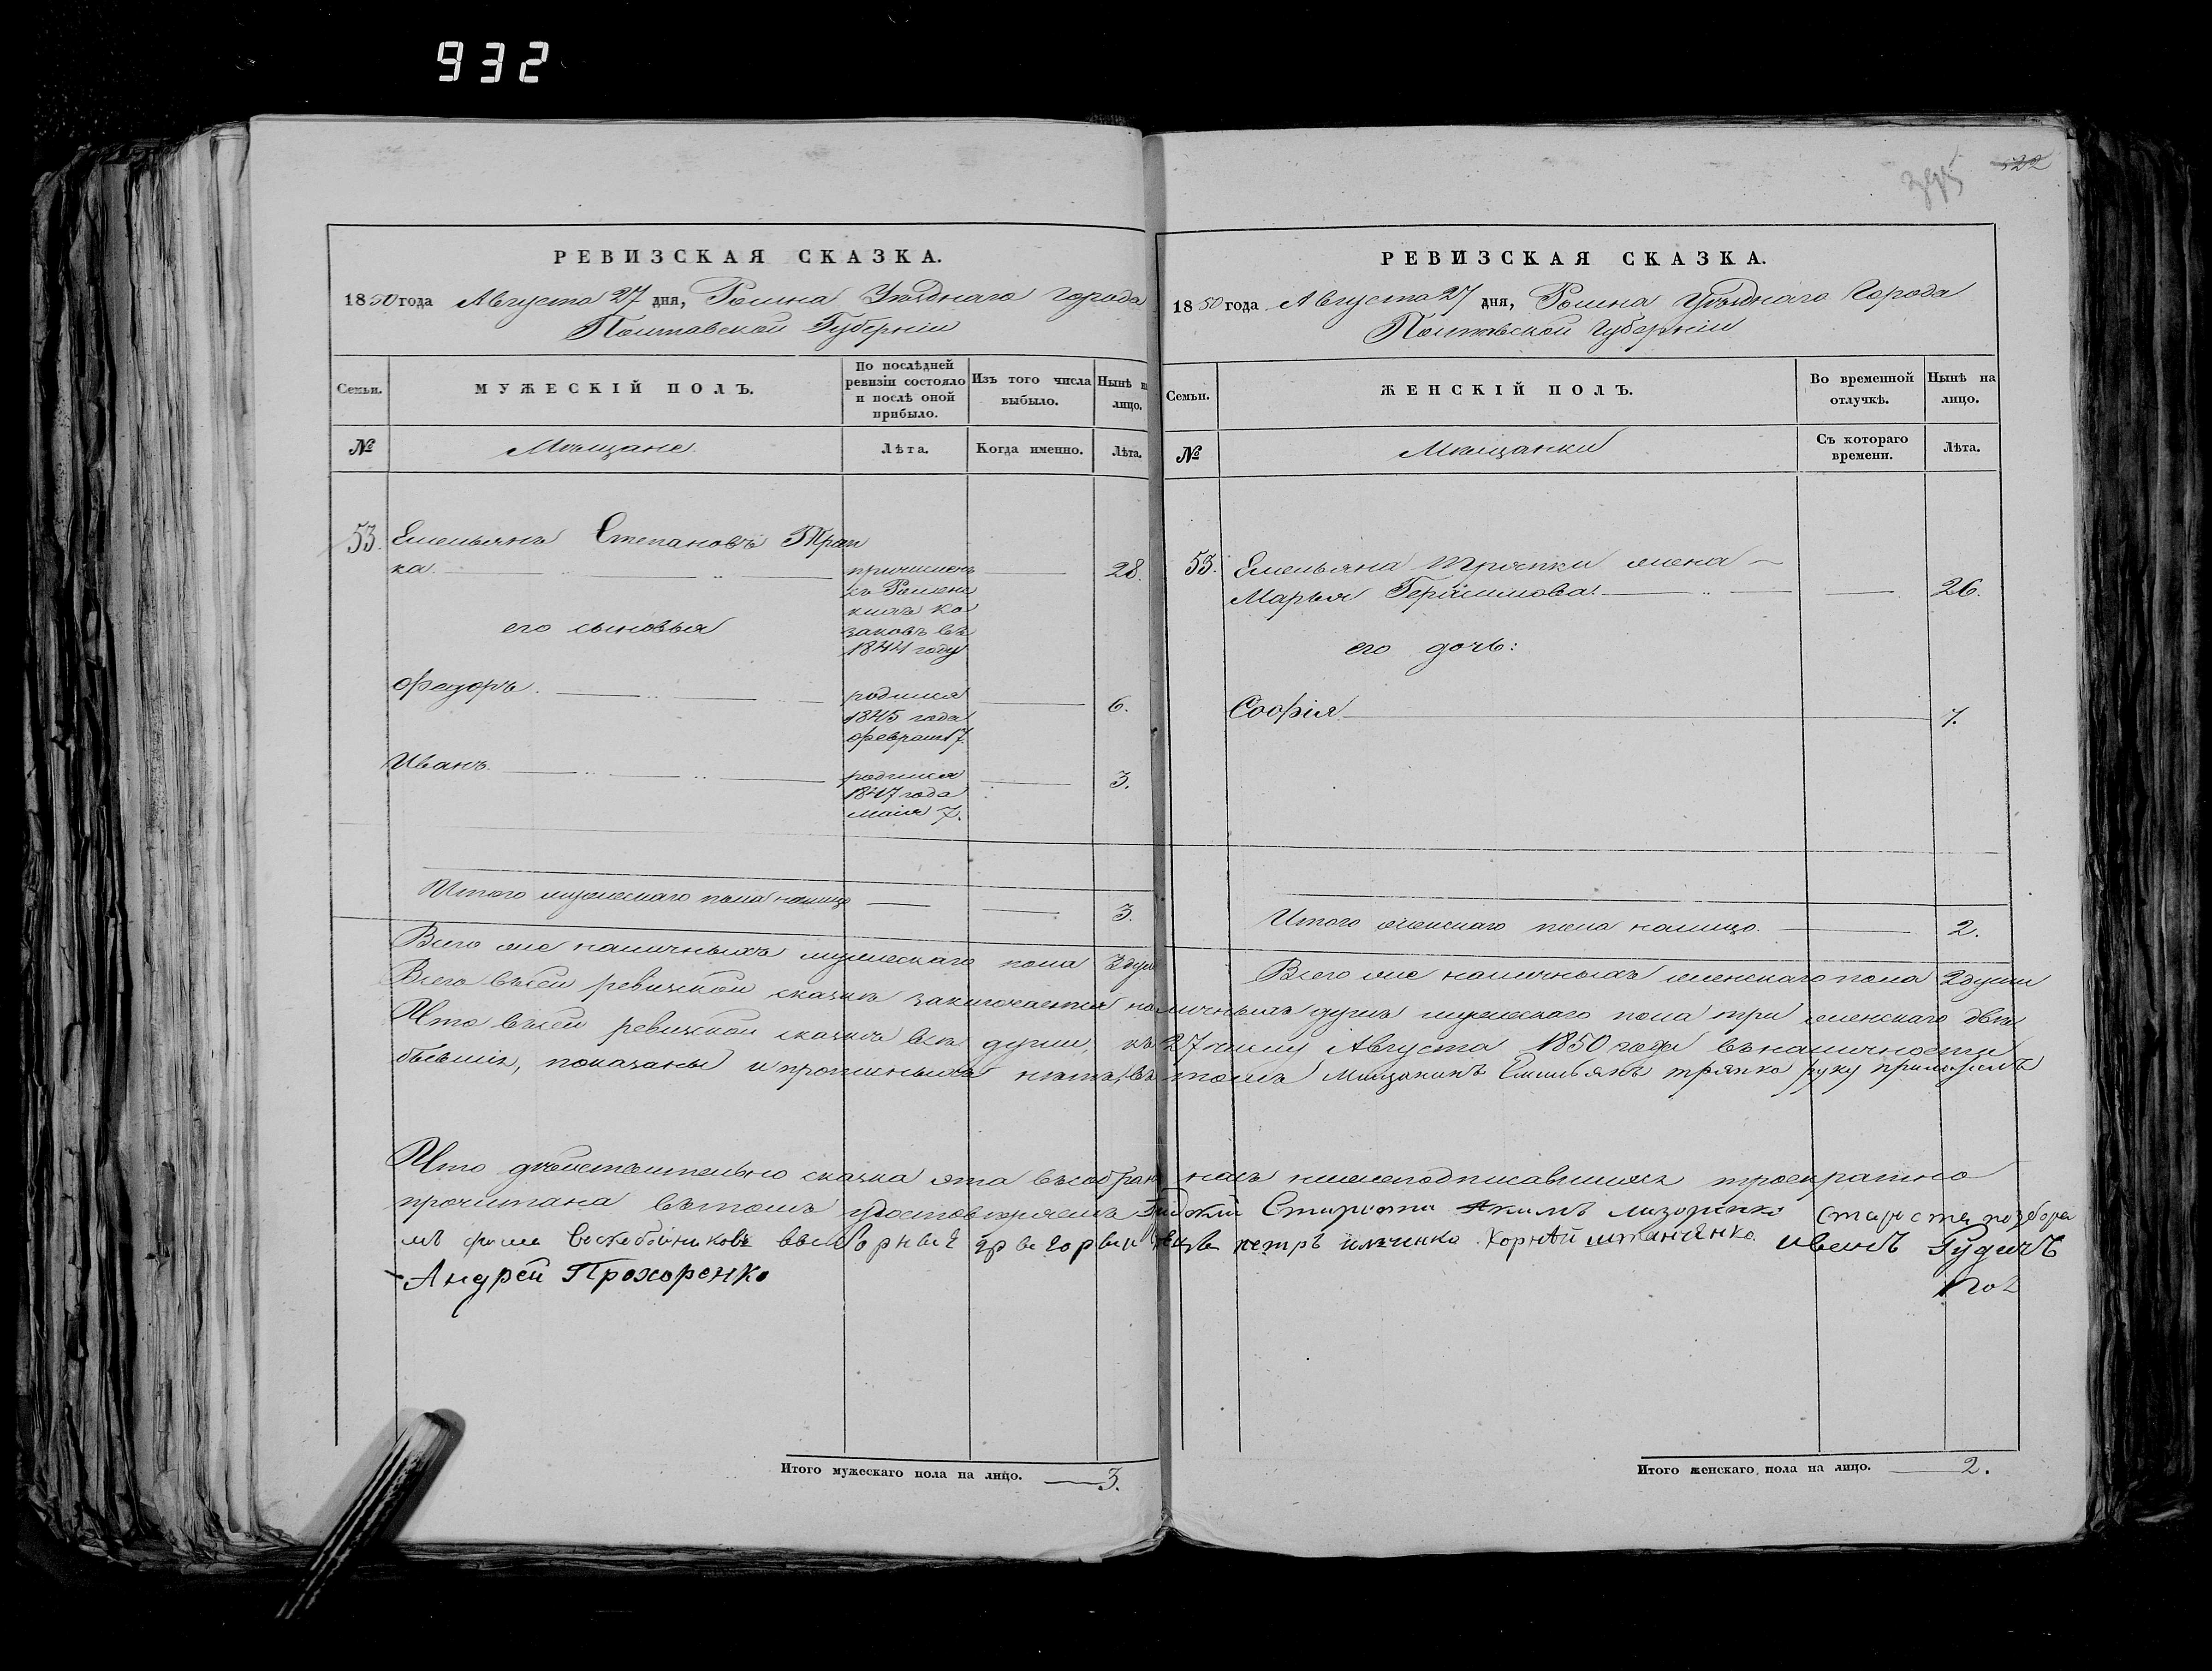 932
395
522
РЕВИЗСКАЯ СКАЗКА.
1850 года Августа 27 дня, Ромна Уѣзднаго города
Полтавской Губерніи
Семьи.
МУЖЕСКІЙ ПОЛЪ.
По послѣдней ревизіи состояло и послѣ оной прибыло.
Изъ того числа выбыло.
Нынѣ на лицо.
№
Мѣщане.
Лѣта.
Когда именно.
Лѣта.
53. Емельянъ Степановъ Тряп
ка. причисленъ 28.
съ Роменс
кихъ ко
его сыновья заковъ въ
1844 году
Федоръ. родился 6.
1845 года
февраля 7.
Иванъ. родился 3.
1847 года
маія 7.
Итого мужескаго пола налицо 3.
РЕВИЗСКАЯ СКАЗКА.
1850 года Августа 27 дня, Ромна Уѣзднаго Города
Полтавской Губерніи
Семьи.
ЖЕНСКІЙ ПОЛЪ.
Во временной отлучкѣ.
Нынѣ на лицо.
№
Мѣщанки
Съ котораго времени.
Лѣта.
53. Емельяна Тряпки жена
Марья Герасимова. 26.
его дочь:
Софія 7.
Итого женскаго пола налицо. 2.
Всего же наличныхъ мужескаго пола 3 душ
Всего же наличныхъ женскаго пола 2 души
Всего въ сей ревизской сказкѣ заключается наличныхъ душъ мужескаго пола три женскаго двѣ
Что въ сей ревизской сказкѣ всѣ души, къ 27 числу Августа 1850 года въ наличности
бывшіе, показаны и прописныхъ нѣтъ, въ томъ Мещанинъ Емельянъ тряпка руку приложилъ
Что дѣйствительно сказка эта въ собраніи насъ нижеподписавшихся троекратно
прочитана въ томъ удостовѣряемъ Староста Акимъ лазоренко староста
Воскобойниковъ выборные петръ Корнѣй иванъ Гудимъ
Андрей Прохоренко
Итого мужескаго пола на лицо. 3.
Итого женскаго пола на лицо. 2.